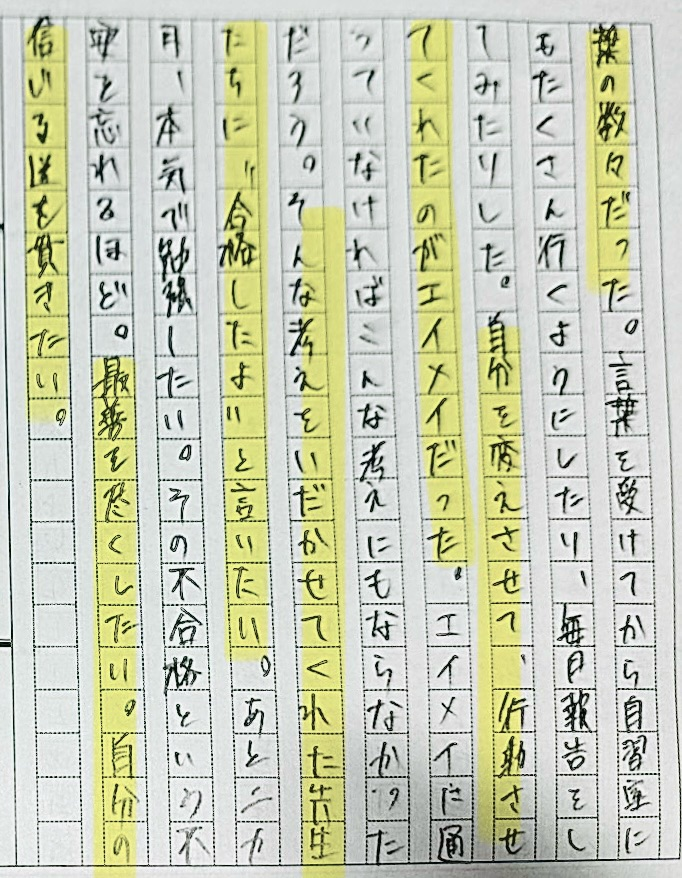 葉の数々だった。言葉を受けてから自習室に
もたくさん行くようにしたり、毎日報告をし
てみたりした。自分を変えさせて、行動させ
てくれたのがエイメイだった。エイメイに通
っていなければこんな考えにもならなかった
だろう。そんな考えをいだかせてくれた先生
たちに"合格したよいと言いたい。あと二カ
月、本気で勉強したい。その不合格という不
安を忘れるほど。最善を尽くしたい。自分の
信じる道を貫きたい。